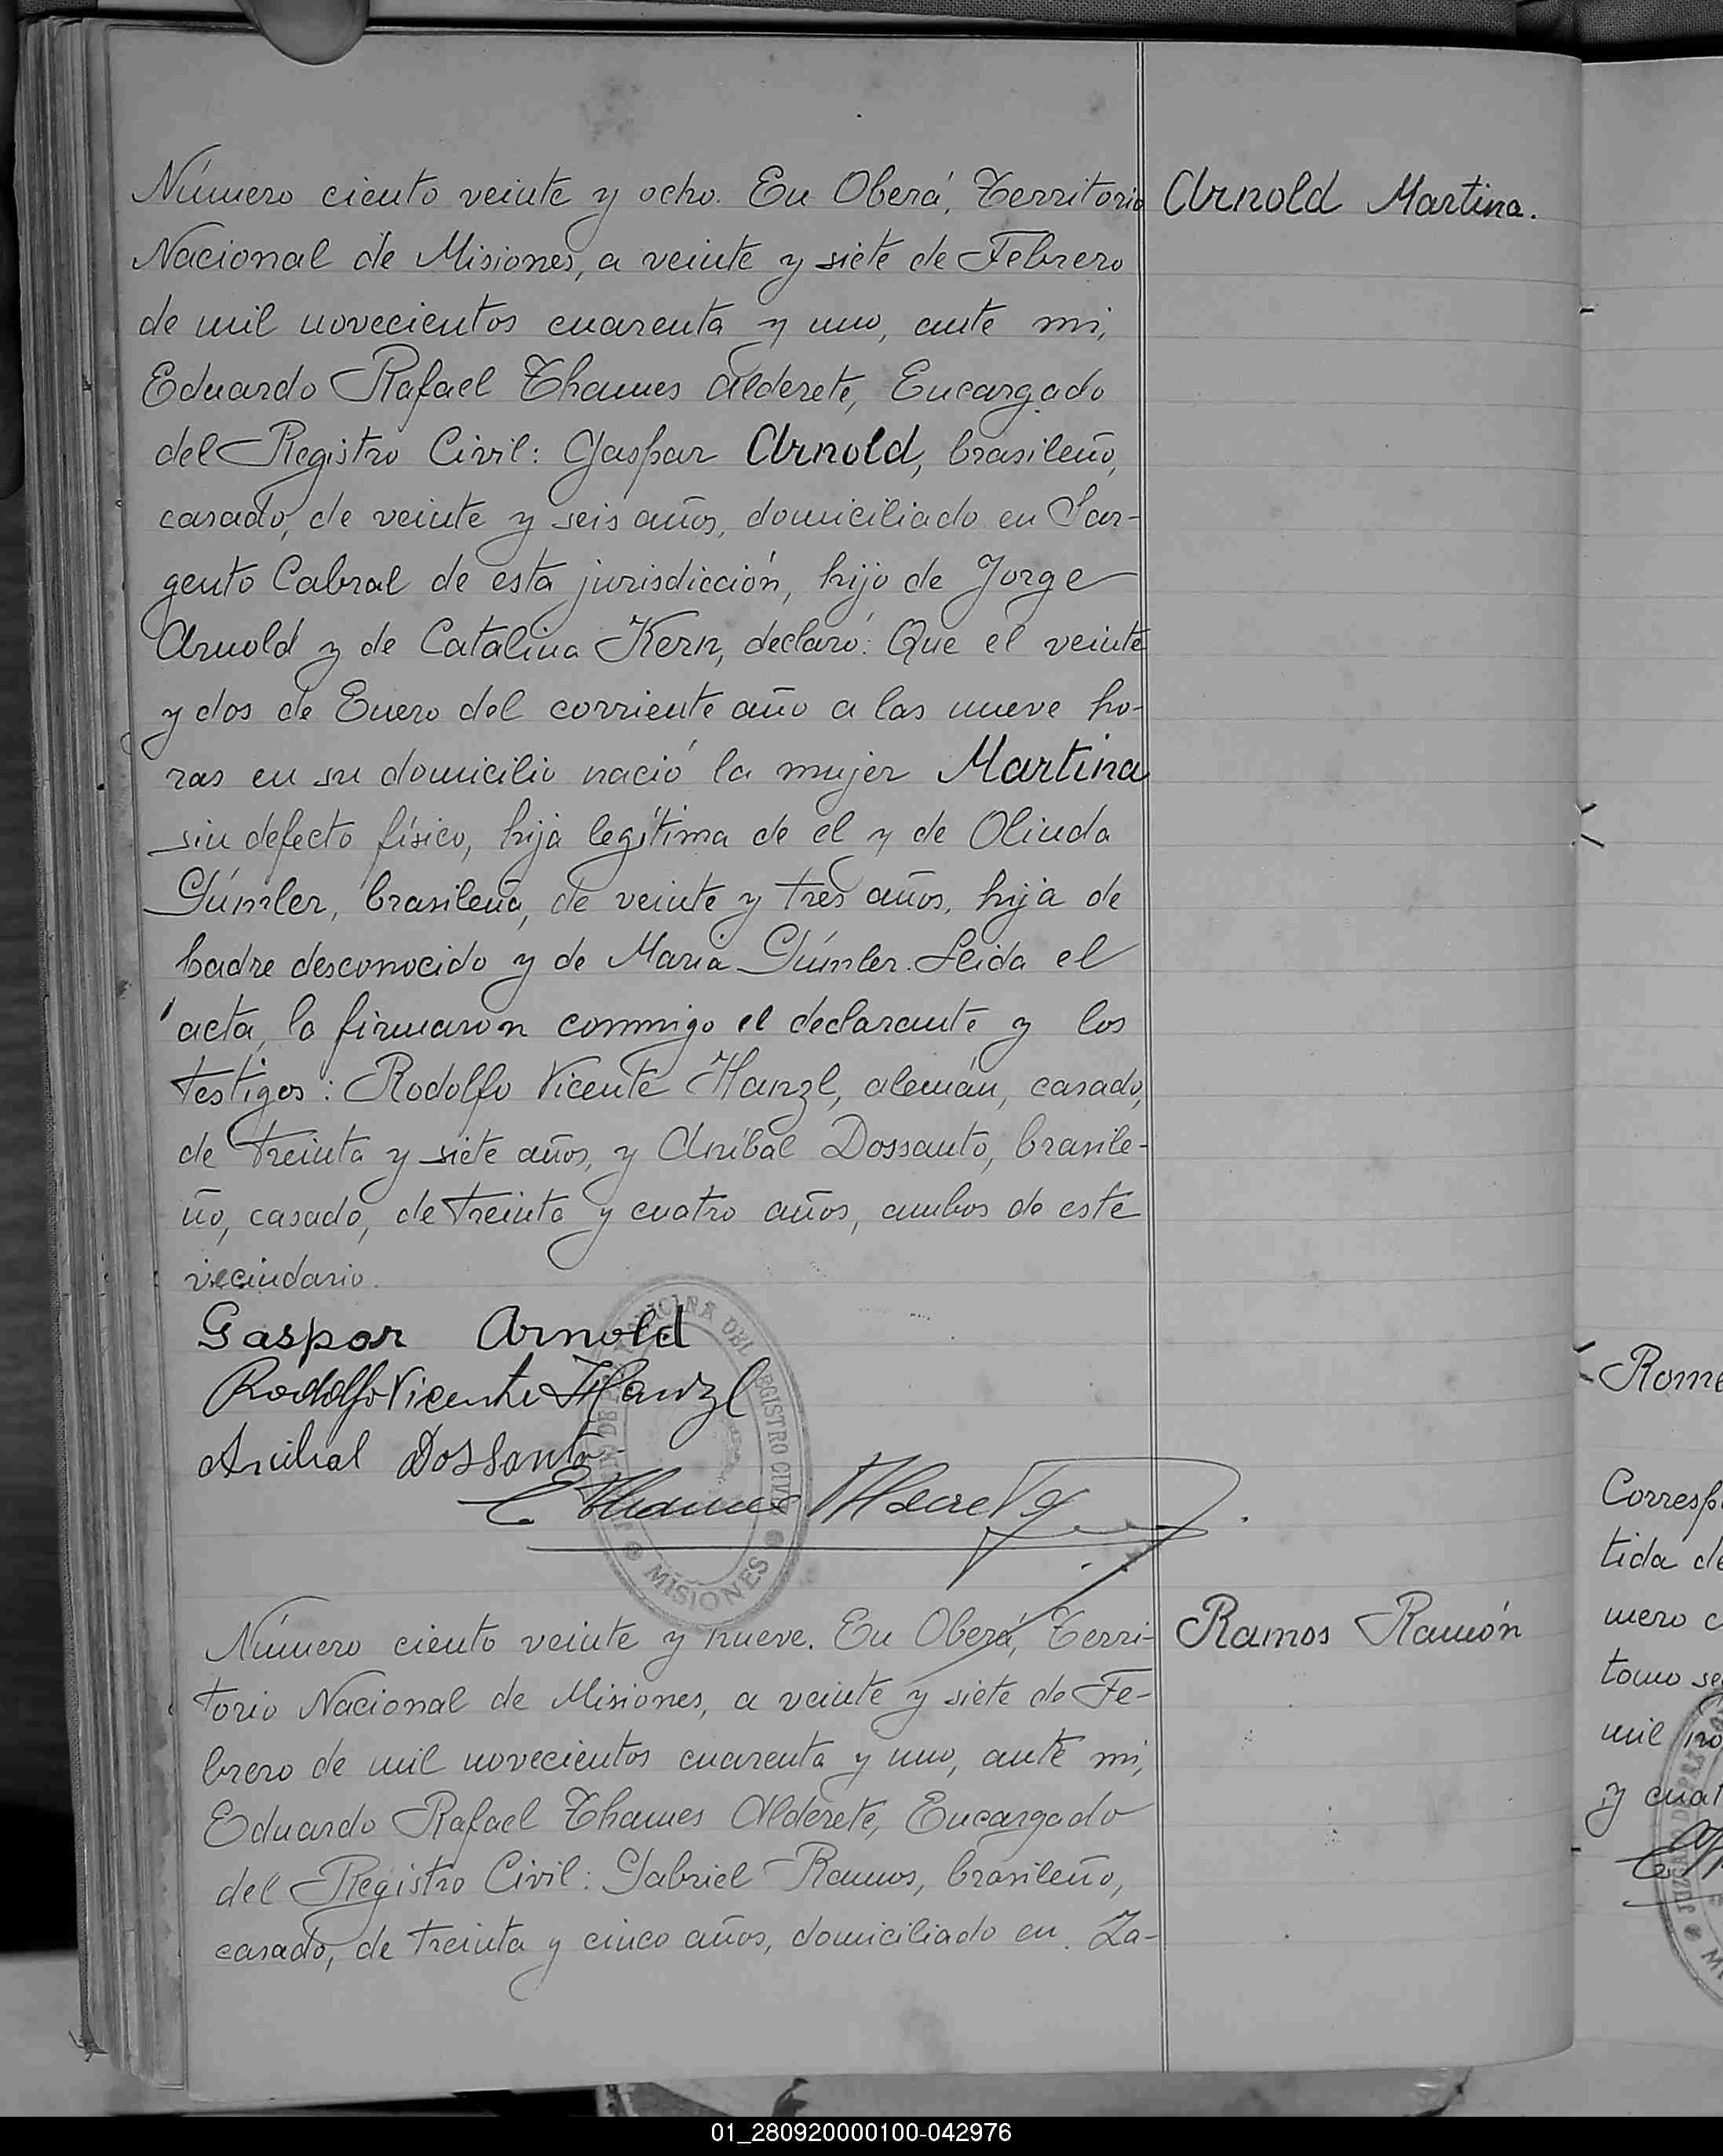 Número ciento veinte y ocho. En Oberá, Territorio
Arnold Martina.
Nacional de Misiones, a veinte y siete de Febrero
de mil novecientos cuarenta y uno, ante mi,
Eduardo Rafael Thames Alderete, Encargado
del Registro Civil: Gaspar Arnold, brasileño,
casado, de veinte y seis años, domiciliado en Sar-
gento Cabral de esta jurisdicción, hijo de Jorge
Arnold y de Catalina Kern, declaró: Que el veinte
y dos de Enero del corriente año a las nueve ho-
ras en su domicilio nació la mujer Martina
sin defecto físico, hija legítima de el y de Olinda
Gúmler, brasileña, de veinte y tres años, hija de
padre desconocido y de Maria Gúmler. Leida el
acta, la firmaron conmigo el declarante y los
testigos: Rodolfo Vicente Hanzl, alemán, casado,
de treinta y siete años, y Aníbal Dossanto, brasile-
ño, casado, de treinta y cuatro años, ambos de este
vecindario.
Gaspar Arnold
Rodolfo Vicente Hanzl
Anibal Dossanto
E Thames Alderete
OFICINA DEL REGISTRO CIVIL
MISIONES
Número ciento veinte y nueve. En Oberá, Terri-
Ramos Ramón
torio Nacional de Misiones, a veinte y siete de Fe-
brero de mil novecientos cuarenta y uno, ante mi,
Eduardo Rafael Thames Alderete, Encargado
del Registro Civil: Gabriel Ramos, brasileño,
casado, de treinta y cinco años, domiciliado en Za-
Rome
Corresp
tida de
mero c
tomo se
mil no
y cuat
JUZGADO DE PAZ
01_280920000100-042976